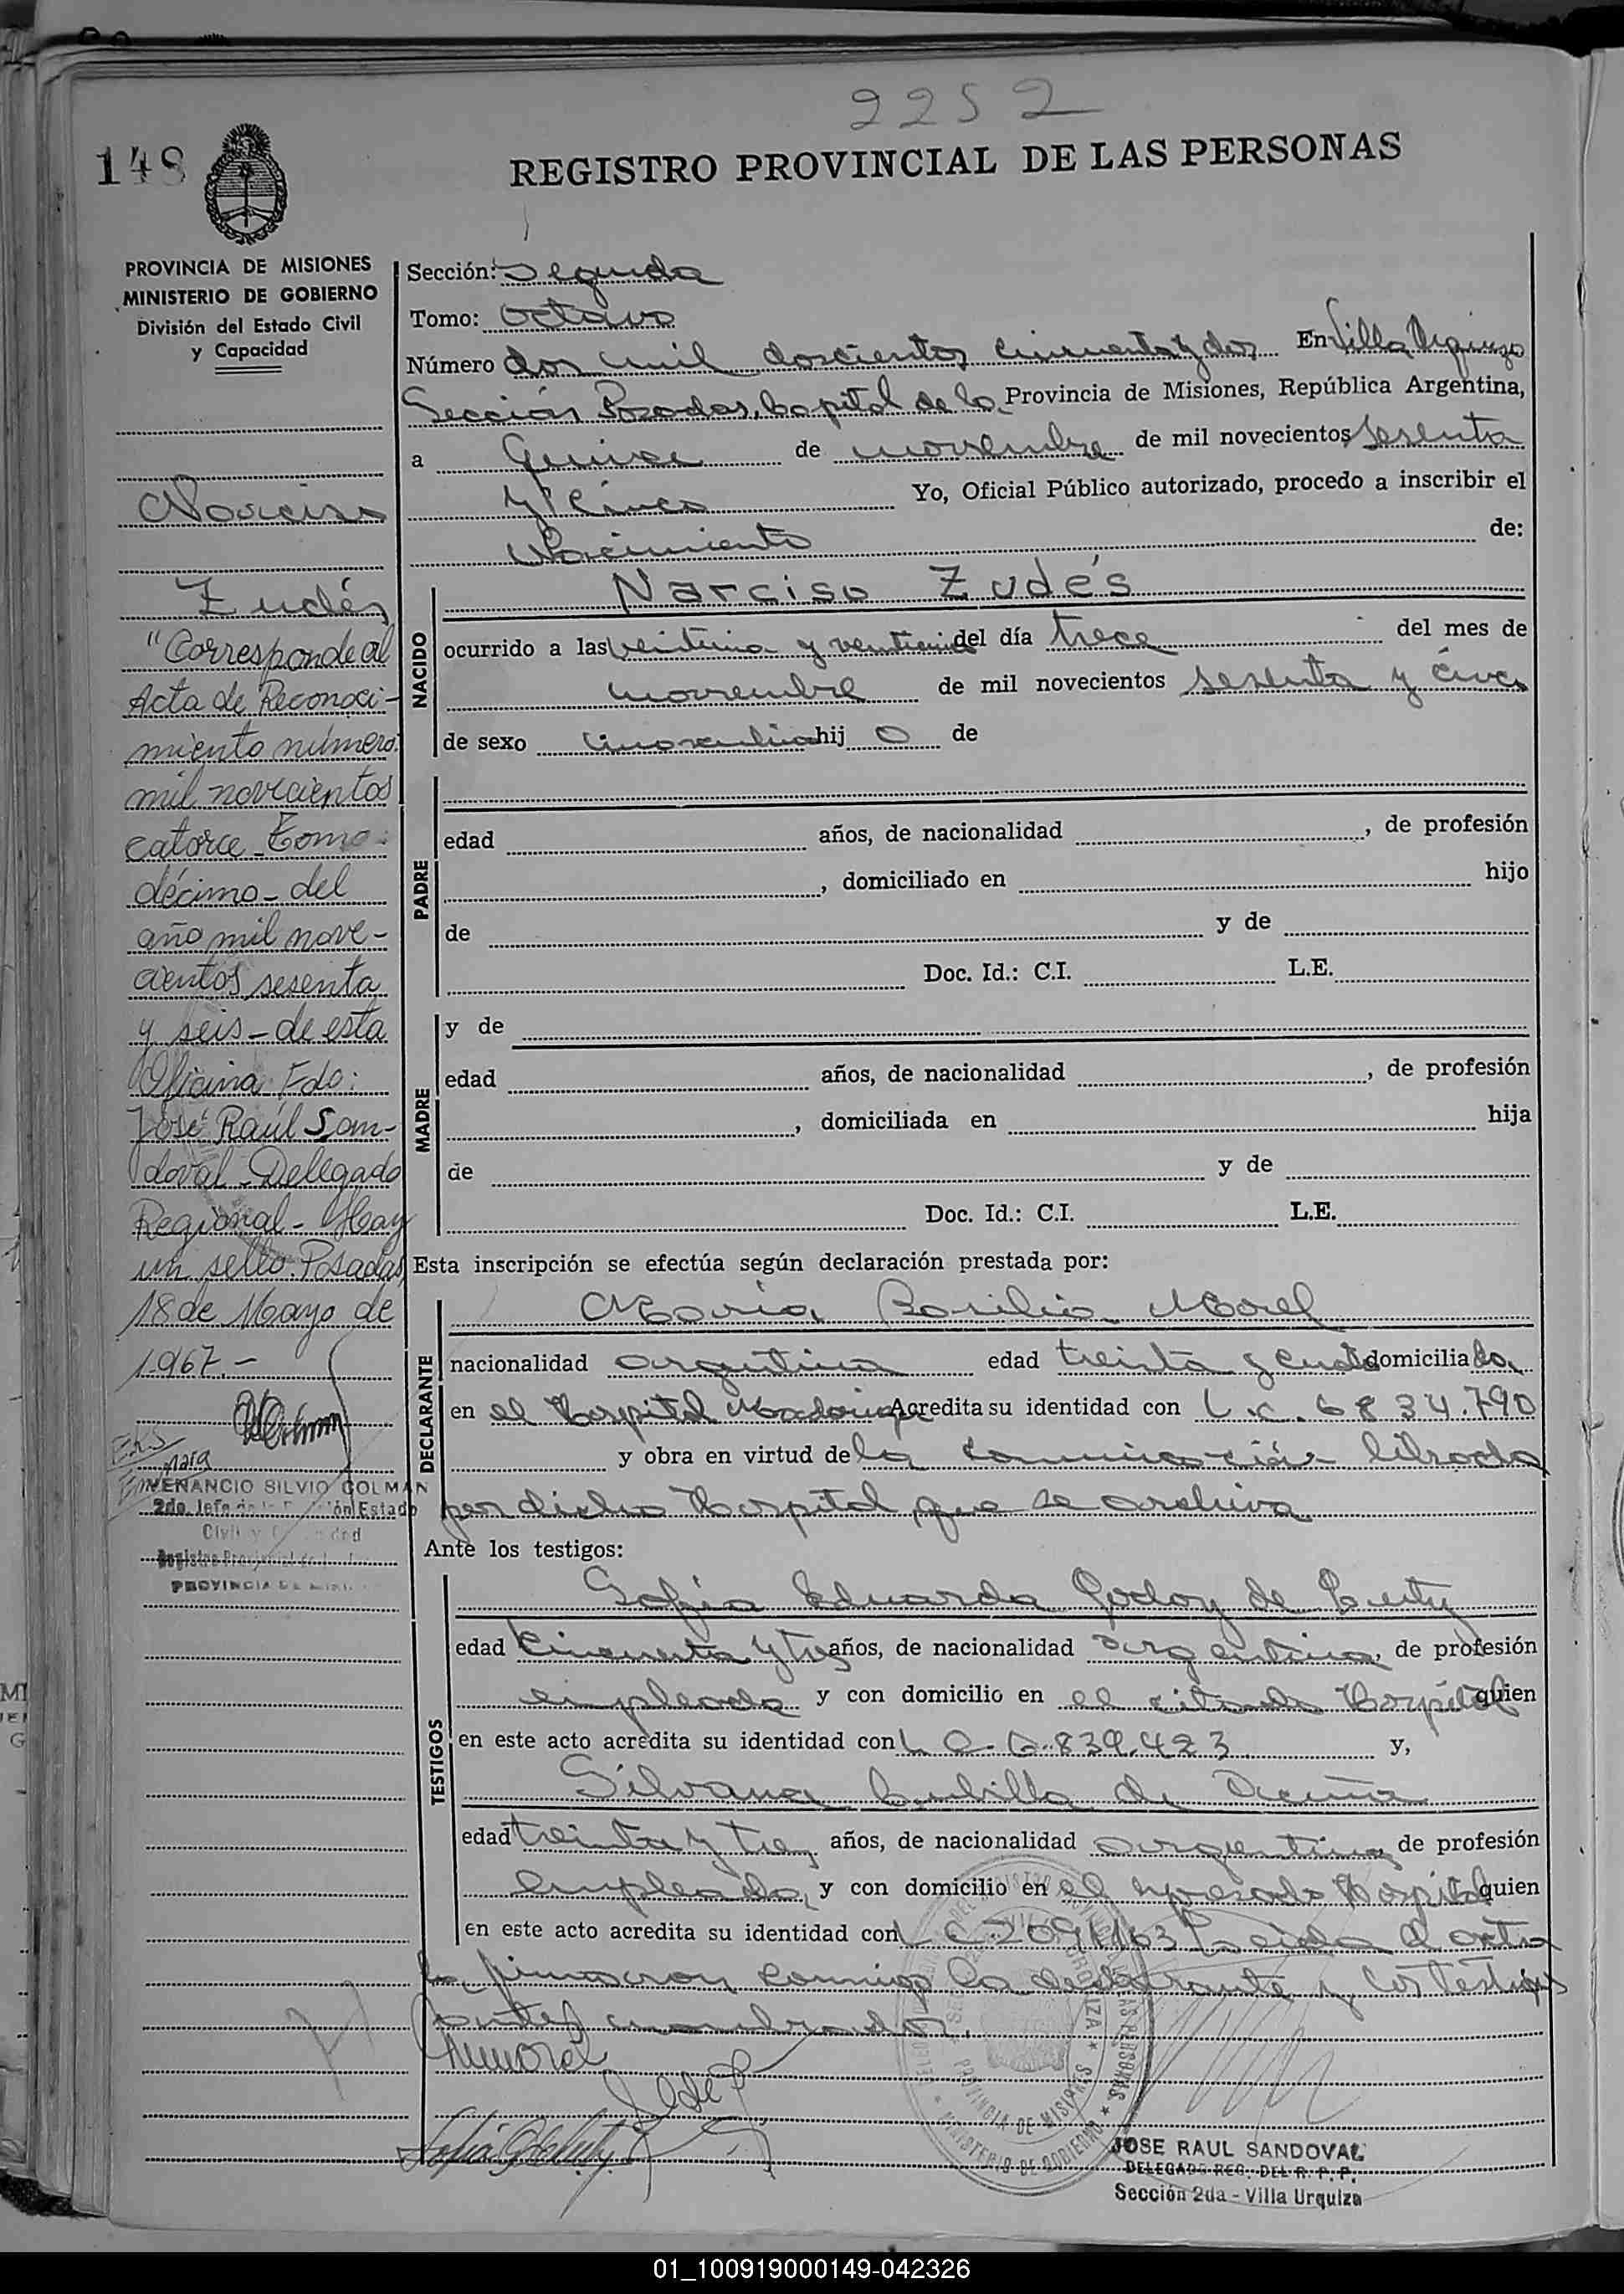 2252
148
REGISTRO PROVINCIAL DE LAS PERSONAS
PROVINCIA DE MISIONES
MINISTERIO DE GOBIERNO
División del Estado Civil
y Capacidad
Narciso
Zudés
"Corresponde al
Acta de Reconoci-
miento número:
mil novecientos
catorce Tomo:
décimo - del
año mil nove-
cientos sesenta
y seis - de esta
Oficina Fdo:
José Raúl San-
doval - Delegado
Regional - Hay
un sello: Posadas,
18 de Mayo de
1967.-
VENANCIO SILVIO COLMAN
2do. Jefe Estado
Civil y
Registro Provincial de
PROVINCIA DE
Sección: Segunda
Tomo: Octavo
Número dos mil doscientos cincuenta y dos En Villa Urquiza
Sección Posadas, Capital de la Provincia de Misiones, República Argentina,
a Quince de noviembre de mil novecientos sesenta
y cinco Yo, Oficial Público autorizado, procedo a inscribir el
Nacimiento de:
NACIDO
Narciso Zudés
ocurrido a las veintiuna y del día trece del mes de
noviembre de mil novecientos sesenta y cinco
de sexo masculino hijo de
PADRE
edad años, de nacionalidad , de profesión
, domiciliado en hijo
de y de
Doc. Id.: C.I. L.E.
MADRE
y de
edad años, de nacionalidad , de profesión
, domiciliada en hija
de y de
Doc. Id.: C.I. L.E.
Esta inscripción se efectúa según declaración prestada por:
DECLARANTE
María Basilia Morel
nacionalidad argentina edad treinta y domiciliada
en el Hospital Madariaga Acredita su identidad con L.C. 6834.790
y obra en virtud de la comunicación librada
por dicho Hospital, que se archiva
Ante los testigos:
TESTIGOS
Sofía Eduarda Godoy de
edad cincuenta y tres años, de nacionalidad argentina, de profesión
empleada y con domicilio en el citado Hospital quien
en este acto acredita su identidad con L.C. 6.839.423 y,
Silvana Cubilla de Acuña
edad treinta y tres años, de nacionalidad argentina, de profesión
empleada, y con domicilio en el expresado Hospital quien
en este acto acredita su identidad con L C 2091163 Leída el acta
la firmaron conmigo la declarante y los testigos
antes nombrados.
JOSE RAUL SANDOVAL
DELEGADO REG. DEL R. P. P.
Sección 2da - Villa Urquiza
01_100919000149-042326